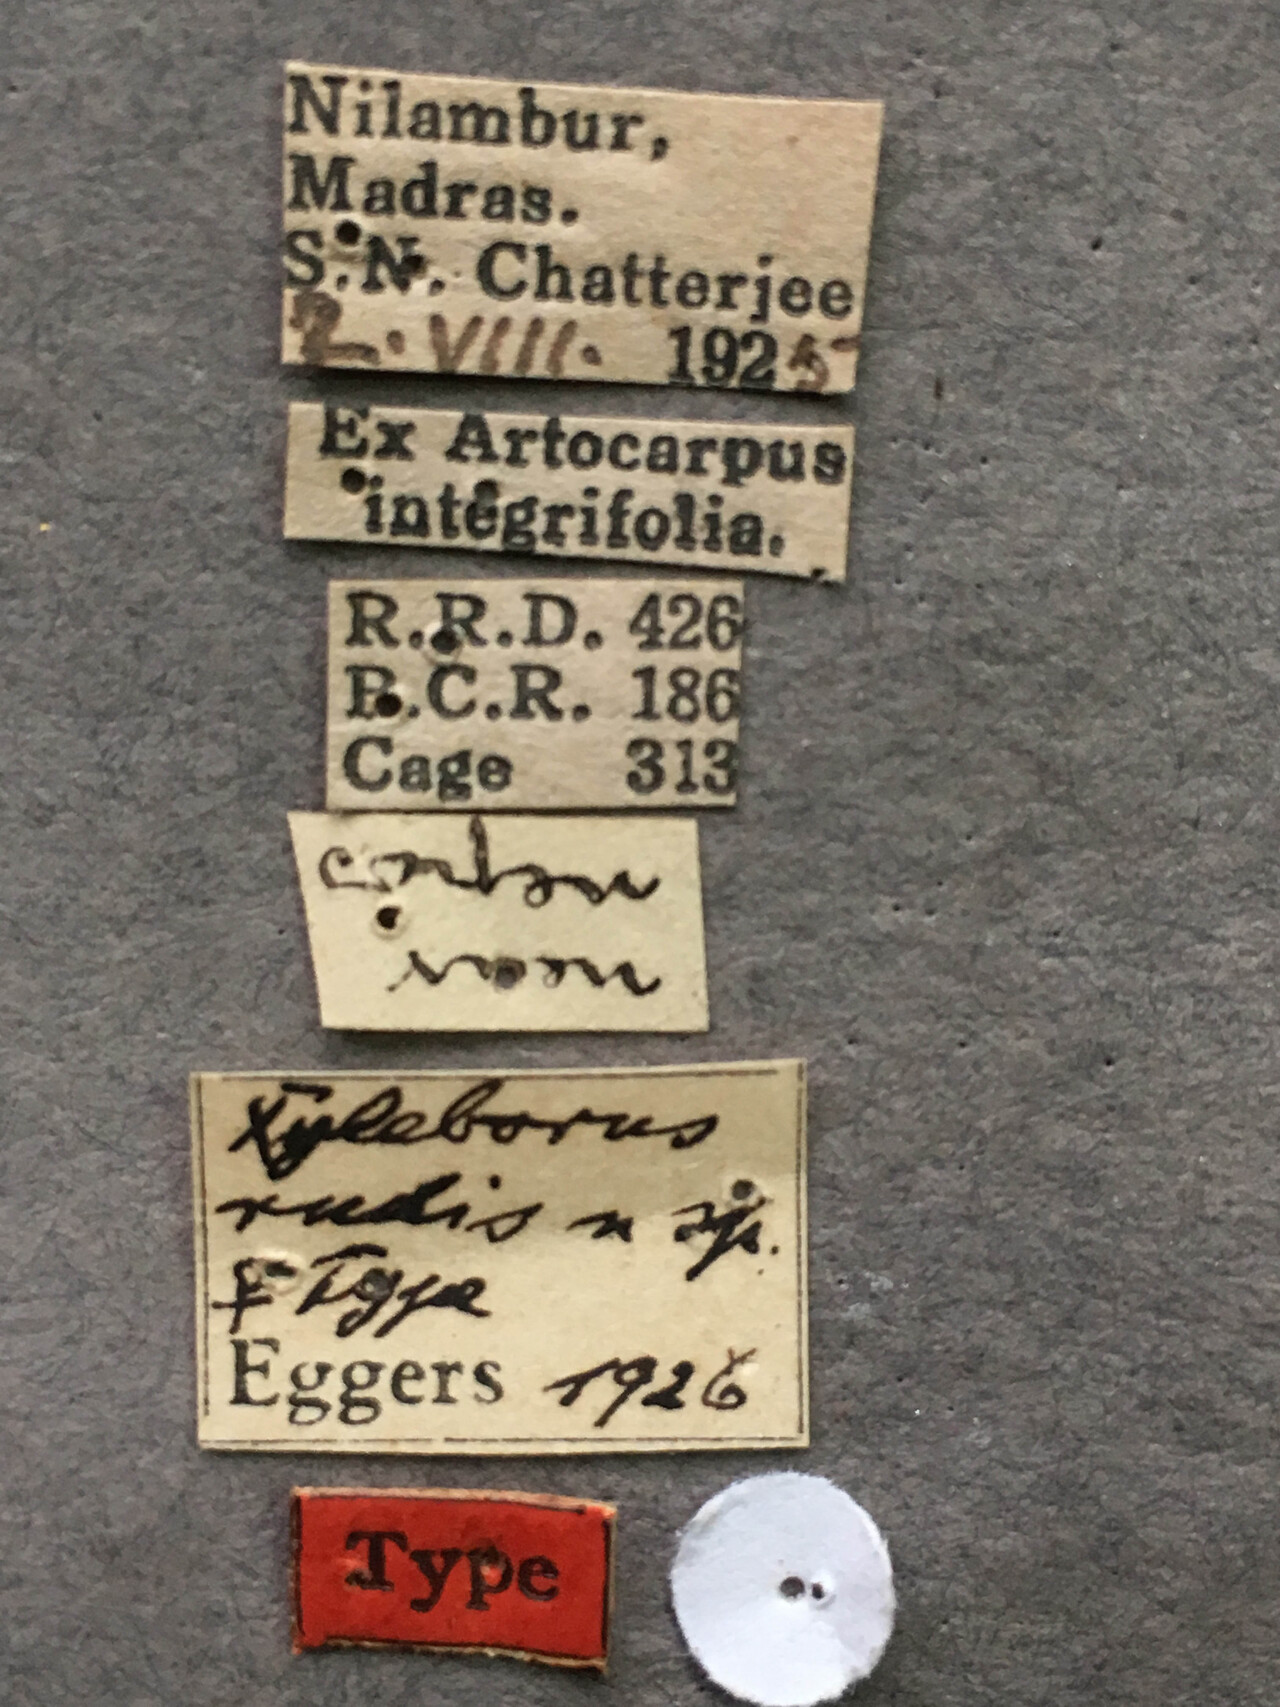 Nilambur,
Madras.
S.N. Chatterjee
2. VIII. 1925
Ex Artocarpus
integrifolia.
R.R.D. 426
B.C.R. 186
Cage 313
near
Xyleborus
rudis n sp.
♀ Type
Eggers 1926
Type